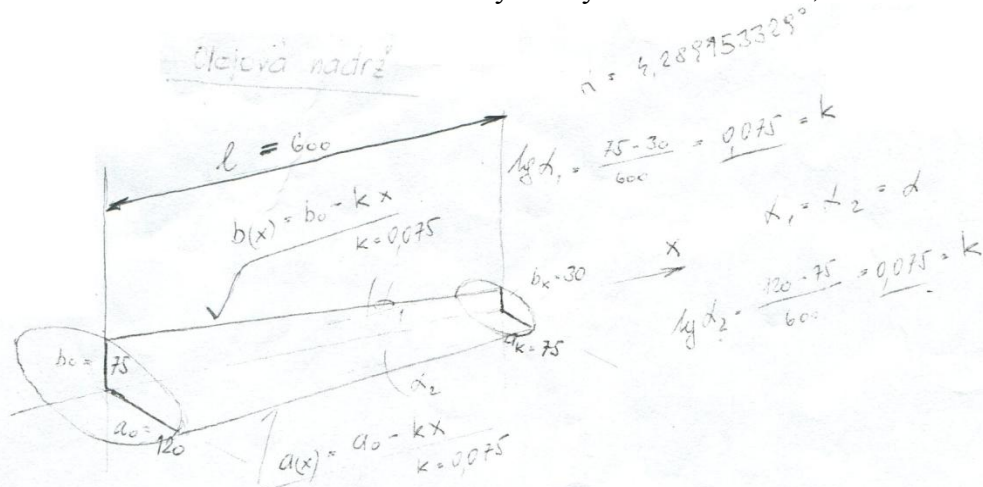 Olejová nádrž
α = 4,289153329°
l = 600
tg α₁ = \frac{75 - 30}{600} = 0,075 = k
b(x) = b₀ - kx
k = 0,075
α₁ = α₂ = α
x
b_k = 30
tg α₂ = \frac{120 - 75}{600} = 0,075 = k
α₁
b₀ = 75
a_k = 75
α₂
a₀ = 120
a(x) = a₀ - kx
k = 0,075